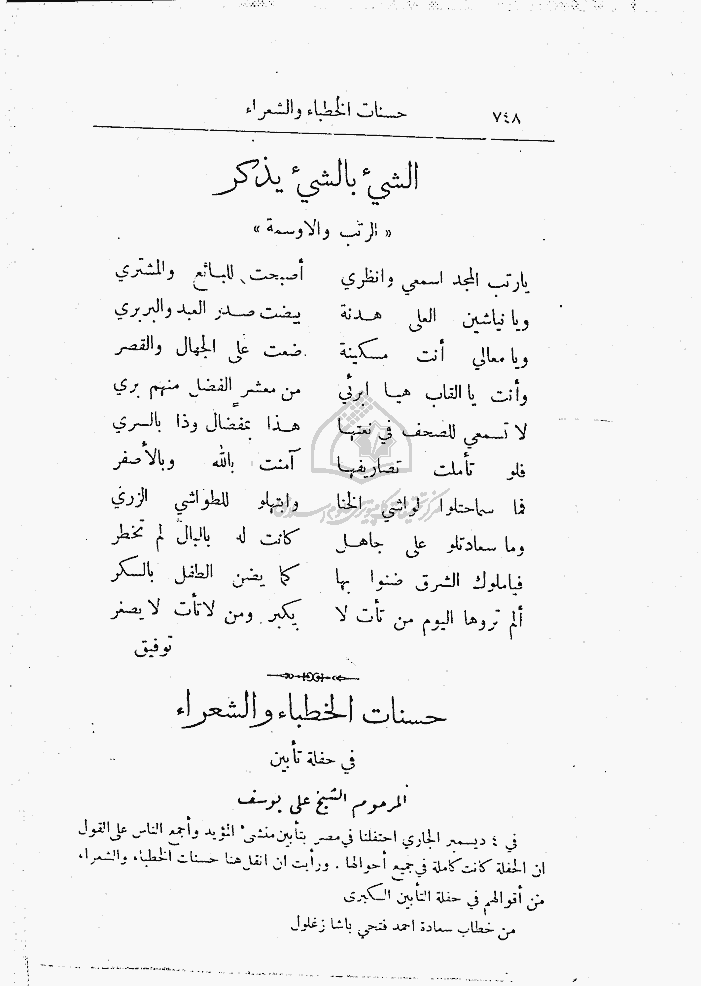 ٧٤٨ حسنات الخطباء والشعراء
الشيء بالشيء يذكر
« الرتب والاوسمة »
يارتب المجد اسمعي وانظري أصبحت للبائع والمشتري
ويا نياشين العلى هدنة بيضت صدر العبد والبربري
ويا معالي أنت مسكينة ضعت على الجهال والقصر
وأنت يا القاب هيا ابرئي من معشر الفضل منهم بري
لا تسمعي للصحف في نعتها هذا بمفضال وذا بالسري
فلو تأملت تصاريفها آمنت بالله وبالأصفر
فما سماحتلوا لواشي الخنا وابتهلو للطواشي الزري
وما سعادتلو على جاهل كانت له بالبال لم تخطر
فياملوك الشرق ضنوا بها كما يضن الطفل بالسكر
ألم تروها اليوم من تأت لا يكبر ومن لا تأت لا يصغر
توفيق
حسنات الخطباء والشعراء
في حفلة تأبين
المرحوم الشيخ علي يوسف
في ٤ ديسمبر الجاري احتفلنا في مصر بتأبين منشىء المؤيد وأجمع الناس على القول
ان الحفلة كانت كاملة في جميع أحوالها . ورأيت ان انقل هنا حسنات الخطباء والشعراء
من أقوالهم في حفلة التأبين الكبرى
من خطاب سعادة احمد فتحي باشا زغلول